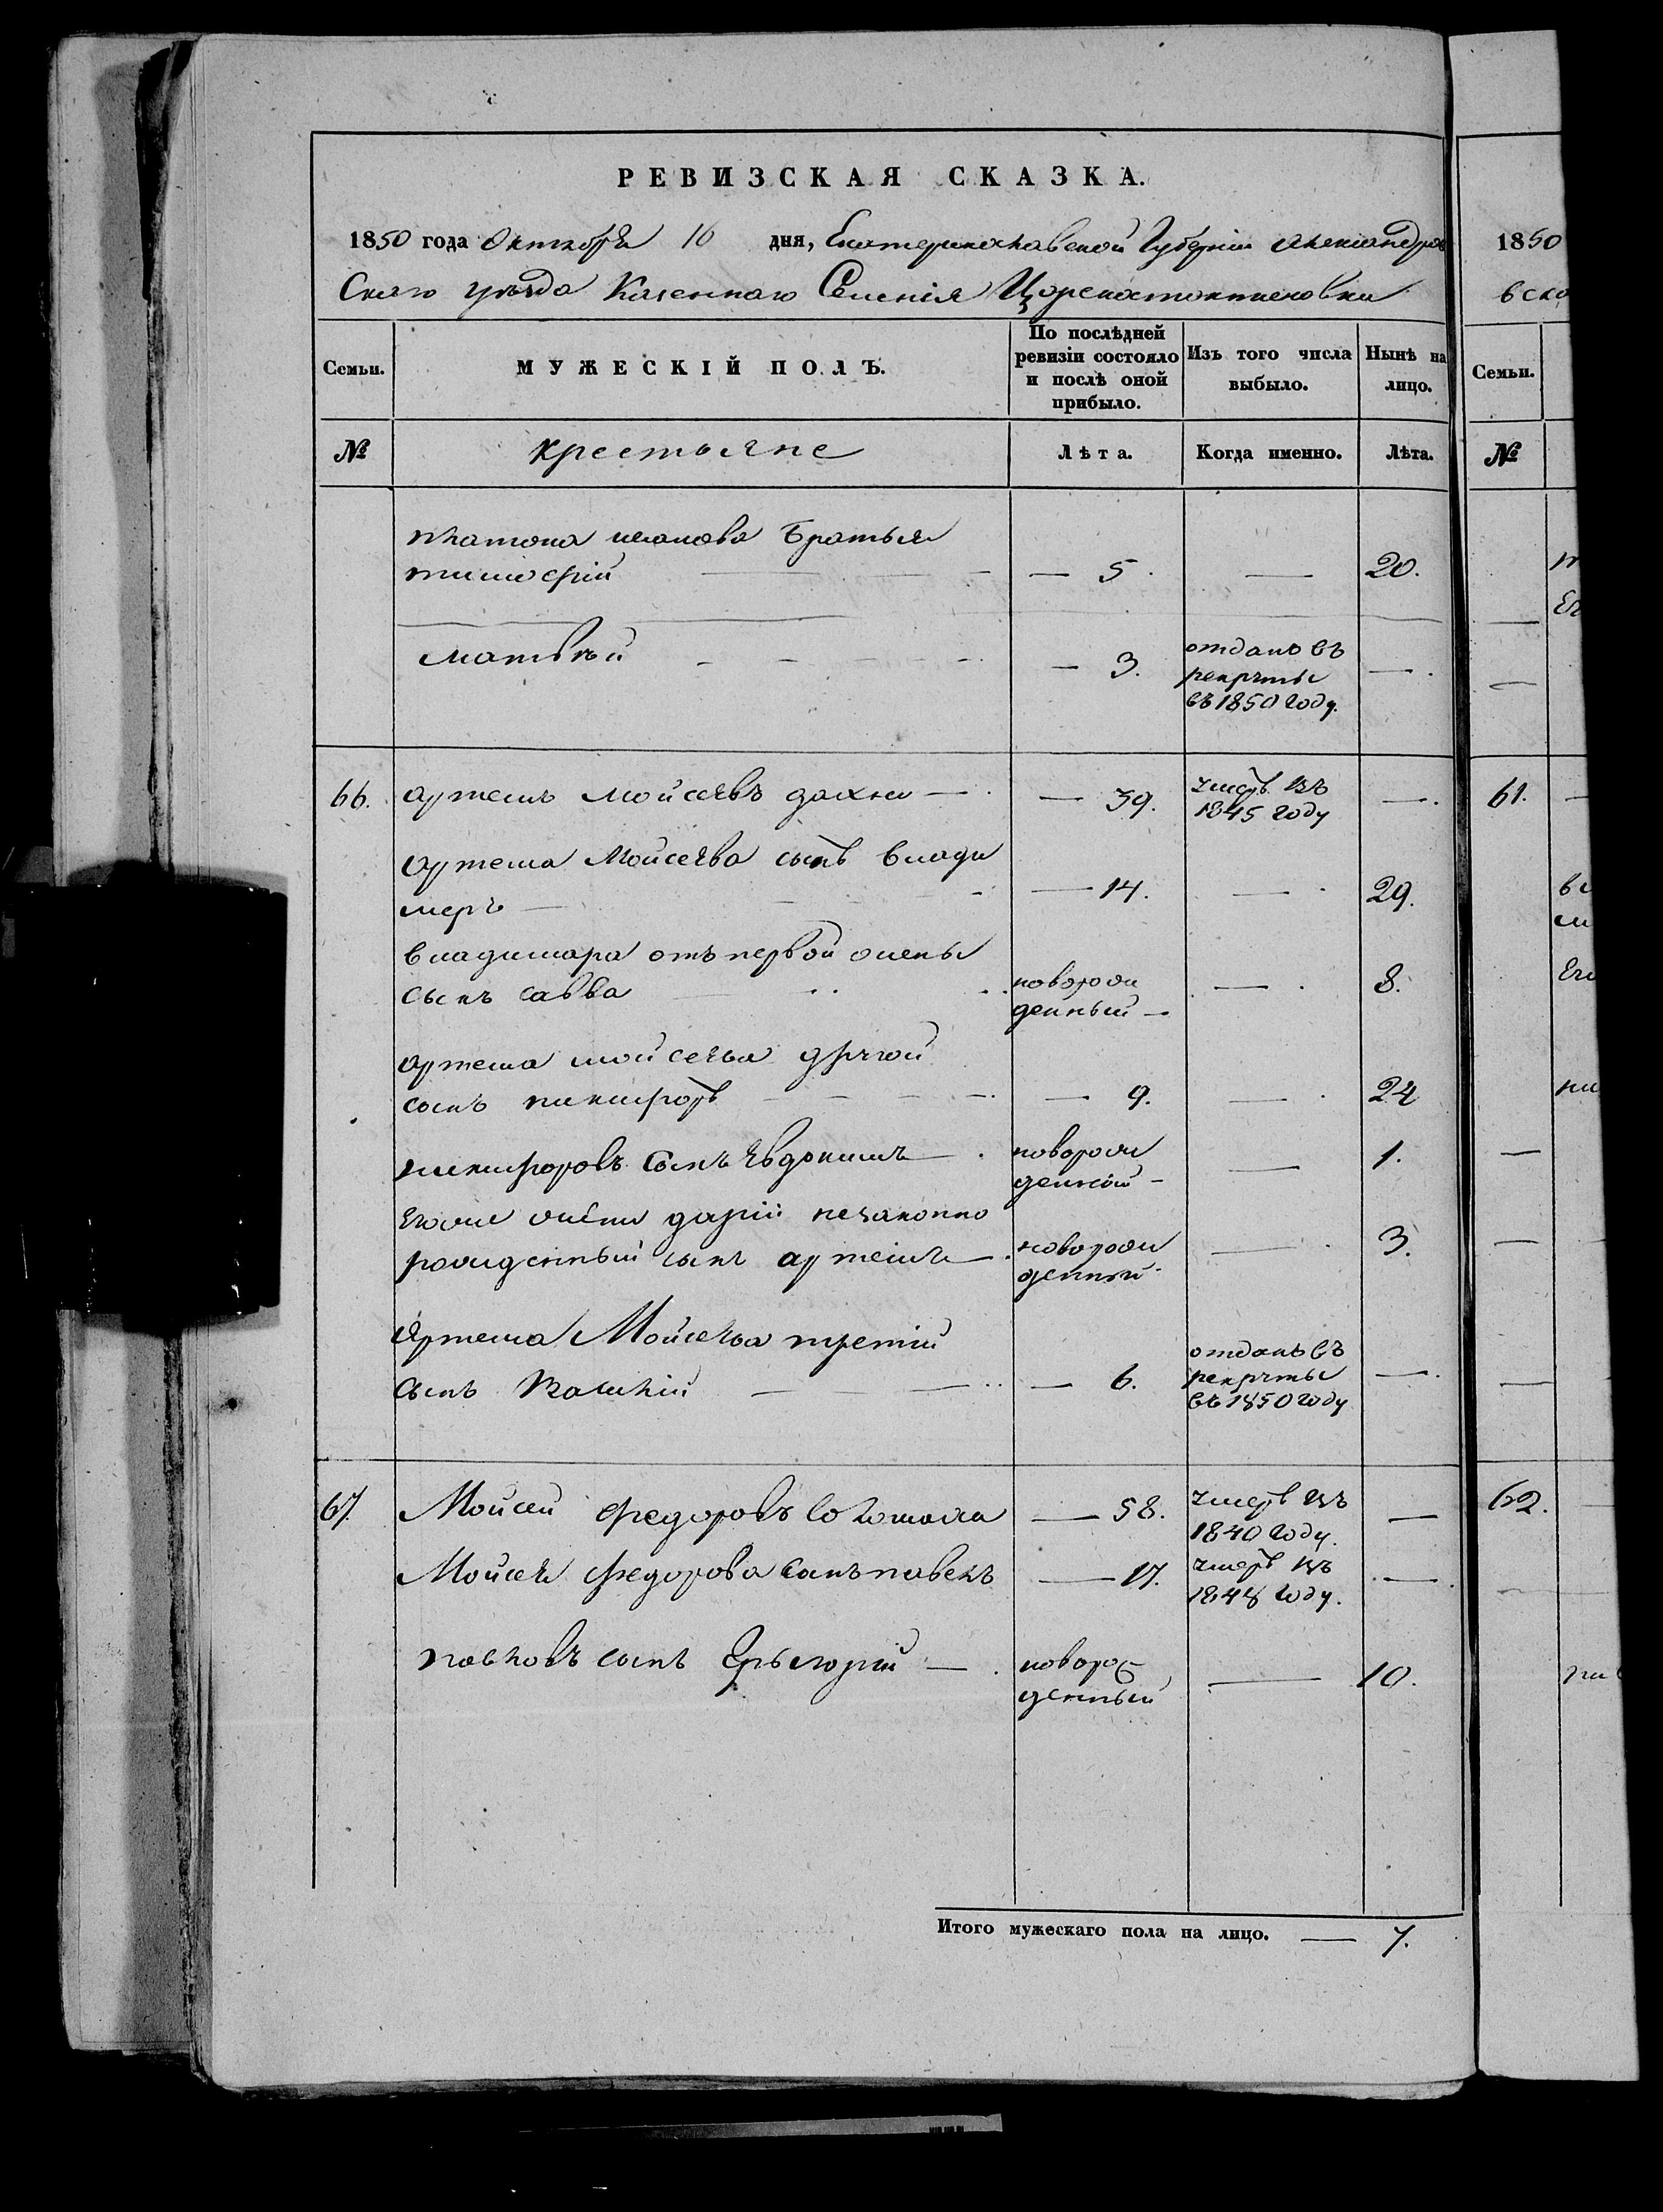 РЕВИЗСКАЯ СКАЗКА.
1850 года Октября 16 дня, Екатеринославской Губернiи Александров
Скаго уѣзда Казеннаго Селенiя Цареконстантиновки
Семьи.
МУЖЕСКІЙ ПОЛЪ.
По послѣдней
ревизіи состояло
и послѣ оной
прибыло.
Изъ того числа
выбыло.
Нынѣ на
лицо.
№
крестьяне
Лѣта.
Когда именно.
Лѣта.
платона иванова Братья
тимофiй — 5. — 20.
Матвѣй — 3. отданъ въ
рекруты
въ 1850 году. —
66. артемъ Мойсеевъ — 39. умеръ въ
1845 году —
артема Мойсеева сынъ влади
меръ — 14. — 29.
владимера отъ первой жены
сынъ савва новорож
денный — 8.
артема мойсеева другой
сынъ никифоръ — 9. — 24
никифоровъ Сынъ Евдокимъ новорож
денный — 1.
Егоже жены дарiи незаконно
рожденный сынъ артемъ новорож
денный — 3.
Артема Мойсеева третiй
сынъ — 6. отданъ въ
рекруты
въ 1850 году —
67. Мойсей федоровъ — 58. умеръ въ
1840 году. —
Мойсея федорова Сынъ павелъ — 17. умеръ въ
1848 году. —
павловъ сынъ Григорiй — новорож
денный — 10.
Итого мужескаго пола на лицо. — 7.
1850
Семьи.
№
61.
62.